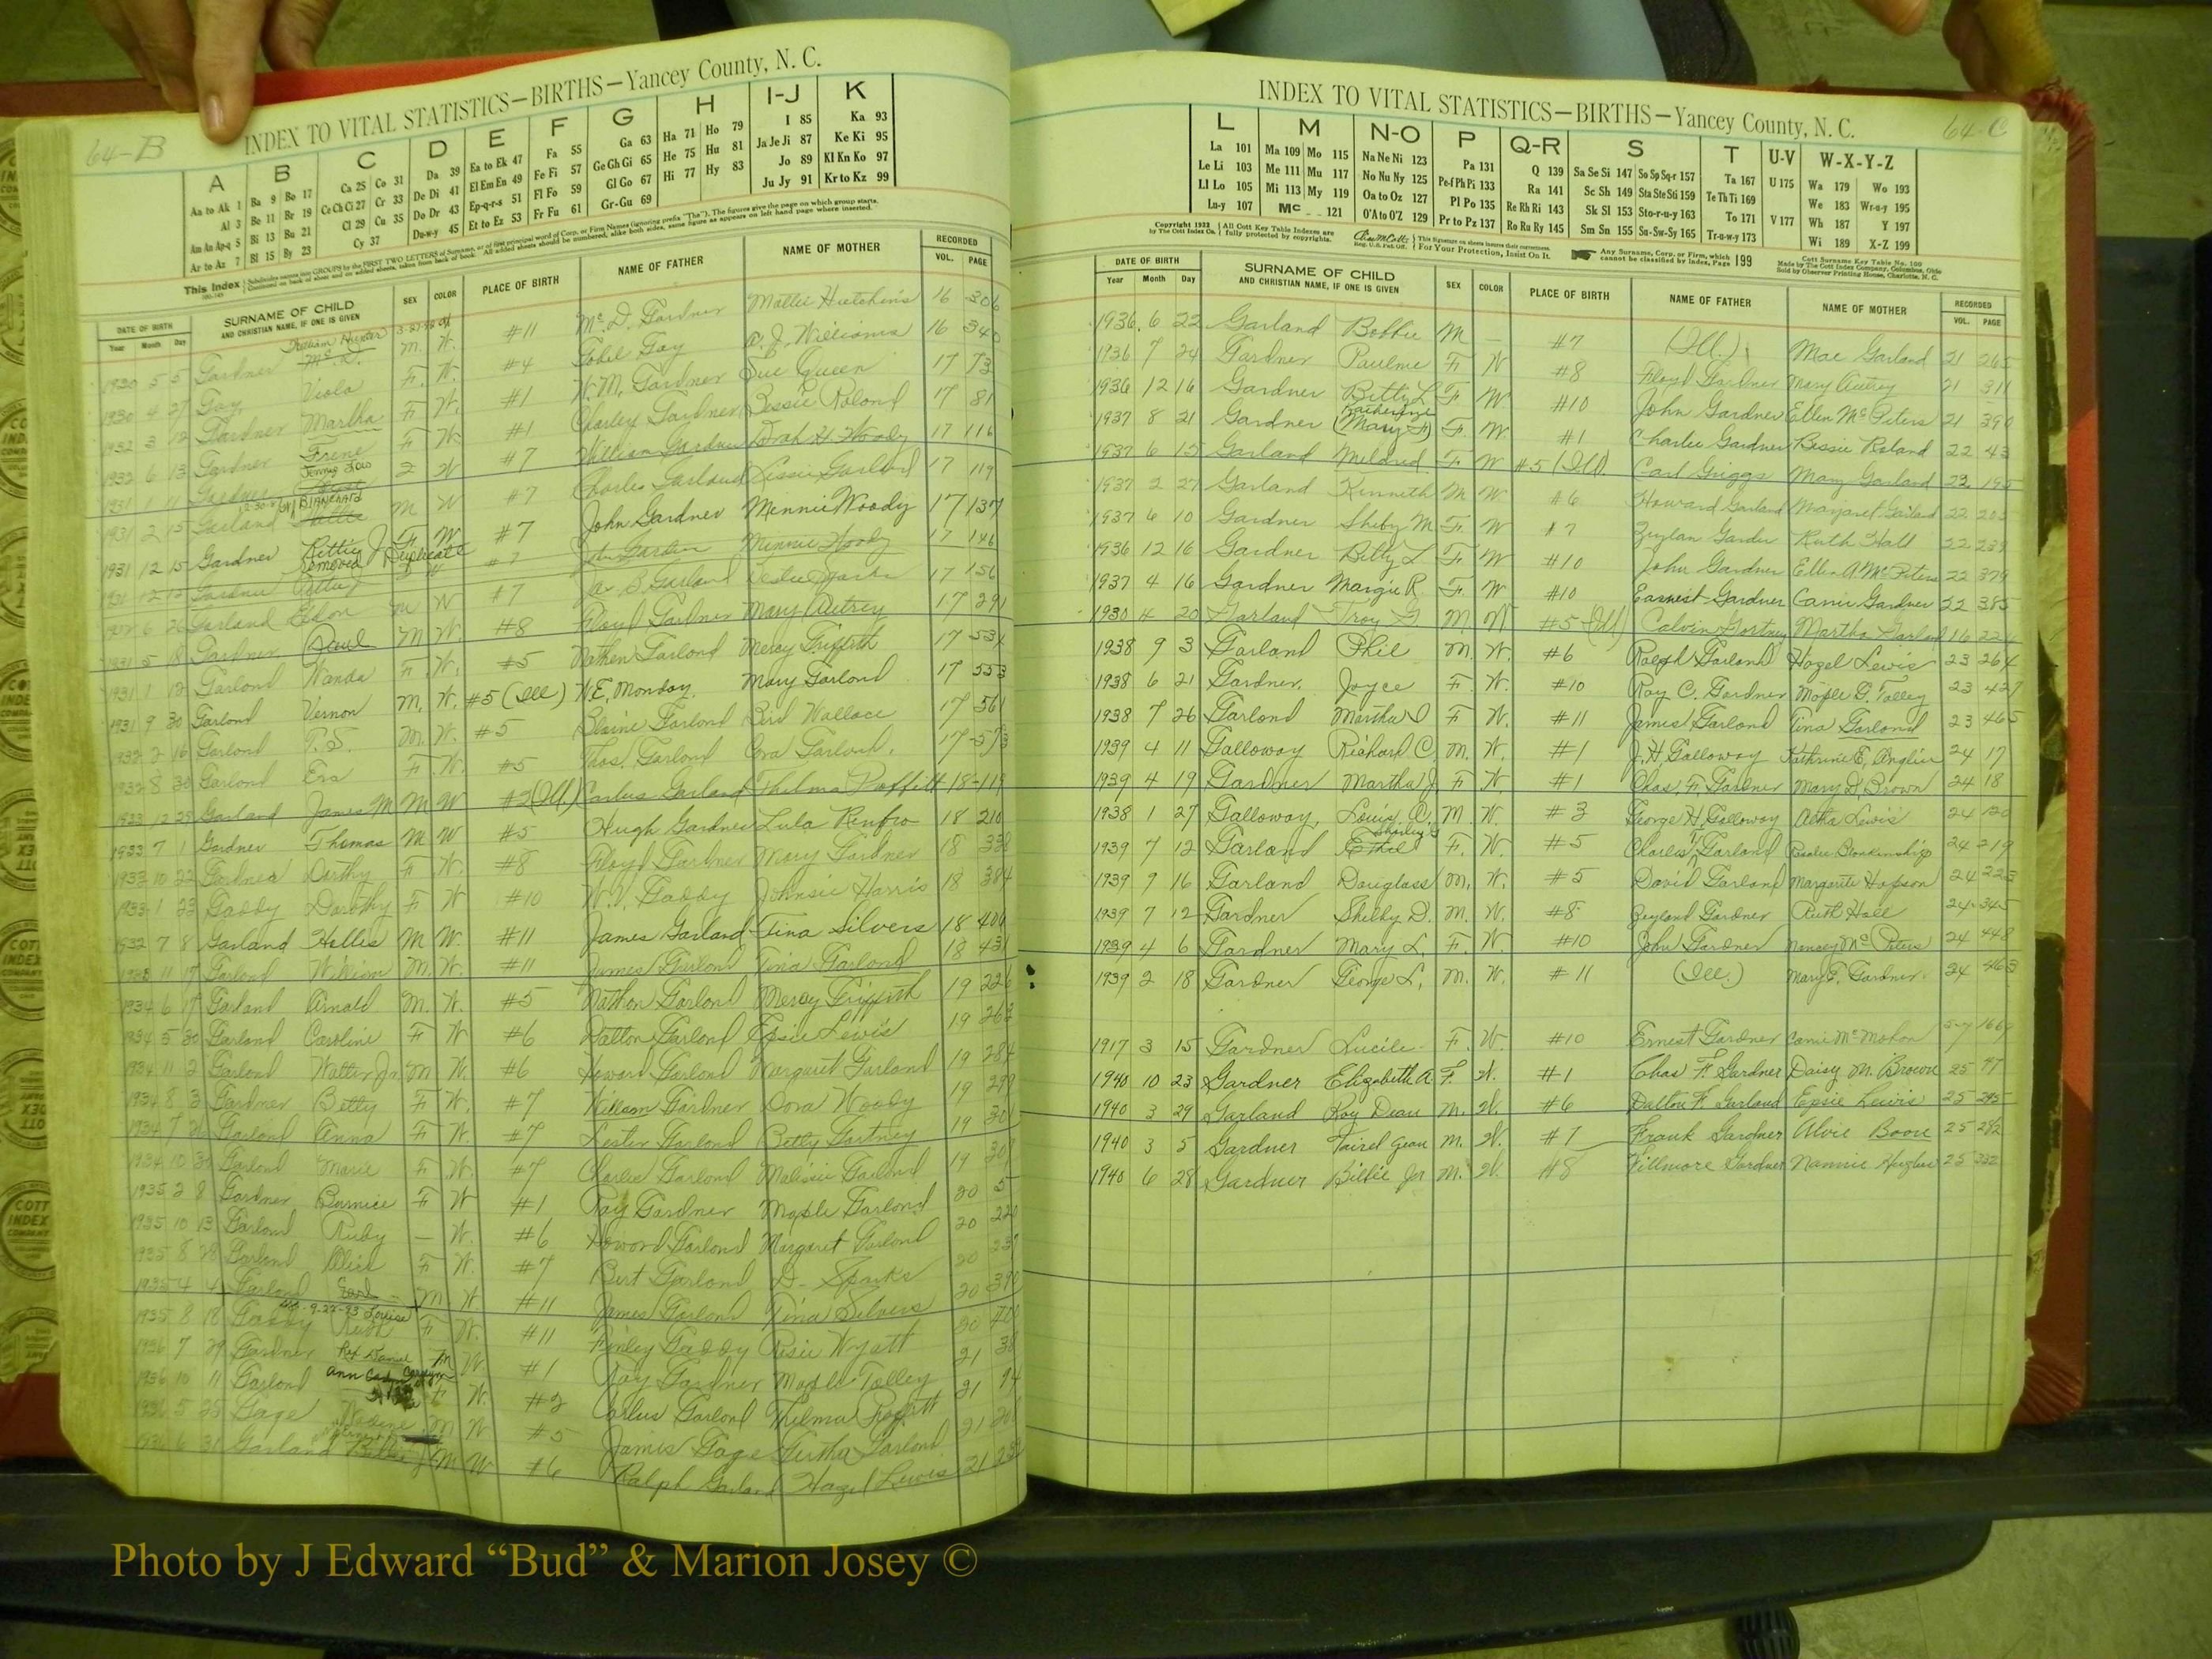 64-B
INDEX TO VITAL STATISTICS—BIRTHS—Yancey County, N. C.
A B C D E F G H I-J K
Aa to Ak 1 Ba 9 Bo 17 Ca 25 Co 31 Da 39 Ea to Ek 47 Fa 55 Ga 63 Ha 71 Ho 79 I 85 Ka 93
Al 3 Be 11 Br 19 Ce Ch Ci 27 Cr 33 De Di 41 El Em En 49 Fe Fi 57 Ge Gh Gi 65 He 75 Hu 81 Ja Je Ji 87 Ke Ki 95
Am An Ap-q 5 Bi 13 Bu 21 Cl 29 Cu 35 Do Dr 43 Ep-q-r-s 51 Fl Fo 59 Gl Go 67 Hi 77 Hy 83 Jo 89 Kl Kn Ko 97
Ar to Az 7 Bl 15 By 23 Cy 37 Du-w-y 45 Et to Ez 53 Fr Fu 61 Gr-Gu 69 Ju Jy 91 Kr to Kz 99
DATE OF BIRTH SURNAME OF CHILD SEX COLOR PLACE OF BIRTH NAME OF FATHER NAME OF MOTHER RECORDED
Year Month Day AND CHRISTIAN NAME, IF ONE IS GIVEN VOL. PAGE
William Hunter
1930 5 5 Gardner Mc. D. M. W. #11 Mc. D. Gardner Mattie Hutchins 16 306
1930 4 27 Gay, Viola F. W. #4 Gobel Gay A. J. Williams 16 340
1932 3 12 Gardner Martha F W. #1 W. M. Gardner Sue Queen 17 73
1932 6 13 Gardner Irene F W. #1 Charlex Gardner Bessie Roland 17 81
1931 1 11 Gardner W #7 William Gardner Dorah H. Woody 17 116
1931 2 15 Garland M W #7 Charles Garland Lissie Garland 17 119
1931 12 15 Gardner Bittie J F W #7 John Gardner Minnie Woody 17 137
removed Duplicate
#7 Minnie Woody 17 146
Garland Eldon M W #7 17 156
1931 5 18 Gardner Paul M W. #8 Floyd Gardner Mary Autrey 17 291
1931 1 12 Garland Wanda F. W. #5 Nathen Garland Mercy Griffith 17 534
1931 9 30 Garland Vernon M. W. #5 (Ill) W. E. Monday Mary Garland 17 553
1932 2 16 Garland T. S. M. W. #5 Blaine Garland Bird Wallace 17 561
1932 8 30 Garland Era F. W. #5 Thos. Garland 17-573
1933 12 29 Garland James M M W #2 (Ill.) Carlus Garland Thelma Proffitt 18-119
1933 7 1 Gardner Thomas M W #5 Hugh Gardner Lula Renfro 18 210
1933 10 22 Gardner Dorthy F W. #8 Floyd Gardner Mary Gardner 18 338
1933 1 23 Gaddy Dorothy F W #10 W. V. Gaddy Johnsie Harris 18 384
1932 7 8 Garland Hollis M W. #11 James Garland Tina Silvers 18 406
1933 11 17 Garland William M. W. #11 James Garland Tina Garland 18 431
1934 6 17 Garland Arnold M. W. #5 Nathan Garland Mercy Griffith 19 226
1934 5 30 Garland Caroline F W #6 Dalton Garland Epsie Lewis 19 263
1934 11 2 Garland Walter Jr. M W. #6 Howard Garland Margaret Garland 19 284
1934 8 3 Gardner Betty F W. #7 William Gardner Dora Woody 19 298
1934 7 Garland Anna F W. #7 Lester Garland Betty Gortney 19 30
1934 10 Garland Marie F W. #7 Charlie Garland Malissie Garland 19 30
1935 2 8 Gardner Bernice F W #1 Ray Gardner Maple Garland 20 5
1935 10 13 Garland Ruby — W. #6 Howard Garland Margaret Garland 20 220
1935 8 Garland Olich F W. #7 Burt Garland D- Sparks 20 237
1935 4 4 Garland Earl M W #11 James Garland Tina Silvers 20 390
9-22-83 Louise
1935 8 18 Gaddy Ruth F W. #11 Finley Gaddy Rosie Wyatt 20
1936 7 29 Gardner Rex Daniel M W #1 Ray Gardner Maple Talley 21 38
1936 10 11 Garland Ann Carolyn F W. #2 Carlus Garland Thelma Proffitt 21 94
1936 5 25 Gage M W #5 James Gage Garland 21
1936 6 31 Garland Billie M W #6 Ralph Garland Hazel Lewis 21
64-C
INDEX TO VITAL STATISTICS—BIRTHS—Yancey County, N. C.
L M N-O P Q-R S T U-V W-X-Y-Z
La 101 Ma 109 Mo 115 Na Ne Ni 123 Pa 131 Q 139 Sa Se Si 147 So Sp Sq-r 157 Ta 167 U 175 Wa 179 Wo 193
Le Li 103 Me 111 Mu 117 No Nu Ny 125 Pe-f Ph Pi 133 Ra 141 Sc Sh 149 Sta Ste Sti 159 Te Th Ti 169 We 183 Wr-u-y 195
Ll Lo 105 Mi 113 My 119 Oa to Oz 127 Pl Po 135 Re Rh Ri 143 Sk Sl 153 Sto-r-u-y 163 To 171 V 177 Wh 187 Y 197
Lu-y 107 Mc 121 O'A to O'Z 129 Pr to Pz 137 Ro Ru Ry 145 Sm Sn 155 Su-Sw-Sy 165 Tr-u-w-y 173 Wi 189 X-Z 199
Copyright 1922 by The Cott Index Co. All Cott Key Table Indexes are fully protected by copyrights. For Your Protection, Insist On It. Any Surname, Corp. or Firm, which cannot be classified by Index, Page 199 Cott Surname Key Table No. 100 Made by The Cott Index Company, Columbus, Ohio Sold by Observer Printing House, Charlotte, N. C.
DATE OF BIRTH SURNAME OF CHILD SEX COLOR PLACE OF BIRTH NAME OF FATHER NAME OF MOTHER RECORDED
Year Month Day AND CHRISTIAN NAME, IF ONE IS GIVEN VOL. PAGE
1936 6 22 Garland Bobbie M — #7 (Ill.) Mae Garland 21 265
1936 7 24 Gardner Pauline F W #8 Floyd Gardner Mary Autrey 21 311
1936 12 16 Gardner Betty L F W #10 John Gardner Ellen McPeters 21 390
Katherine
1937 8 21 Gardner (Mary F) F. W. #1 Charlie Gardner Bessie Roland 22 43
1937 6 15 Garland Mildred F W #5 (Ill) Carl Griggs Mary Garland 22 195
1937 2 27 Garland Kenneth M W #6 Howard Garland Margaret Garland 22 203
1937 6 10 Gardner Shelby M F. W #7 Zeylan Garder Ruth Hall 22 239
1936 12 16 Gardner Betty L F. W #10 John Gardner Ellen A McPeters 22 379
1937 4 16 Gardner Margie R F. W #10 Earnest Gardner Carrie Gardner 22 385
1930 4 20 Garland Troy G M. W #5 (Ill) Calvin Gortney Martha Garland 16 22
1938 9 3 Garland Phil M. W. #6 Ralph Garland Hazel Lewis 23 264
1938 6 21 Gardner, Joyce F. W. #10 Roy C. Gardner Maple G. Talley 23 427
1938 7 26 Garland Martha I F W. #11 James Garland Tina Garland 23 465
1939 4 11 Galloway Richard C. M. W. #1 J. H. Galloway Kathrine E. Anglin 24 17
1939 4 19 Gardner Martha J F W. #1 Chas. F. Gardner Mary D. Brown 24 18
1938 1 27 Galloway, Louis C. M. W. #3 George H. Galloway Aetha Lewis 24 120
Shirley
1939 7 12 Garland Ethel F. W. #5 Charles Garland Rosalee Blankinship 24 219
1939 9 16 Garland Douglass M. W. #5 David Garland Margarite Hopson 24 223
1939 7 12 Gardner Shelby D. M. W. #8 Zeyland Gardner Ruth Hall 24 345
1939 4 6 Gardner Mary L. F. W. #10 John Gardner Nancy Mc Peters 24 448
1939 2 18 Gardner George L. M. W. #11 (Ill.) Mary E. Gardner 24 463
1917 3 15 Gardner Lucile F. W. #10 Ernest Gardner Carrie McMahan
1940 10 23 Gardner Elizabeth A. F. W. #1 Chas F. Gardner Daisy M. Brown 25 47
1940 3 29 Garland Roy Dean M. W. #6 Dalton F. Garland Epsie Lewis 25 245
1940 3 5 Gardner Tairel Gean M. W. #7 Frank Gardner Alvie Boone 25 282
1940 6 28 Gardner Billie Jr M. W. #8 Fillmore Gardner Nannie Hughes 25 332
Photo by J Edward “Bud” & Marion Josey ©